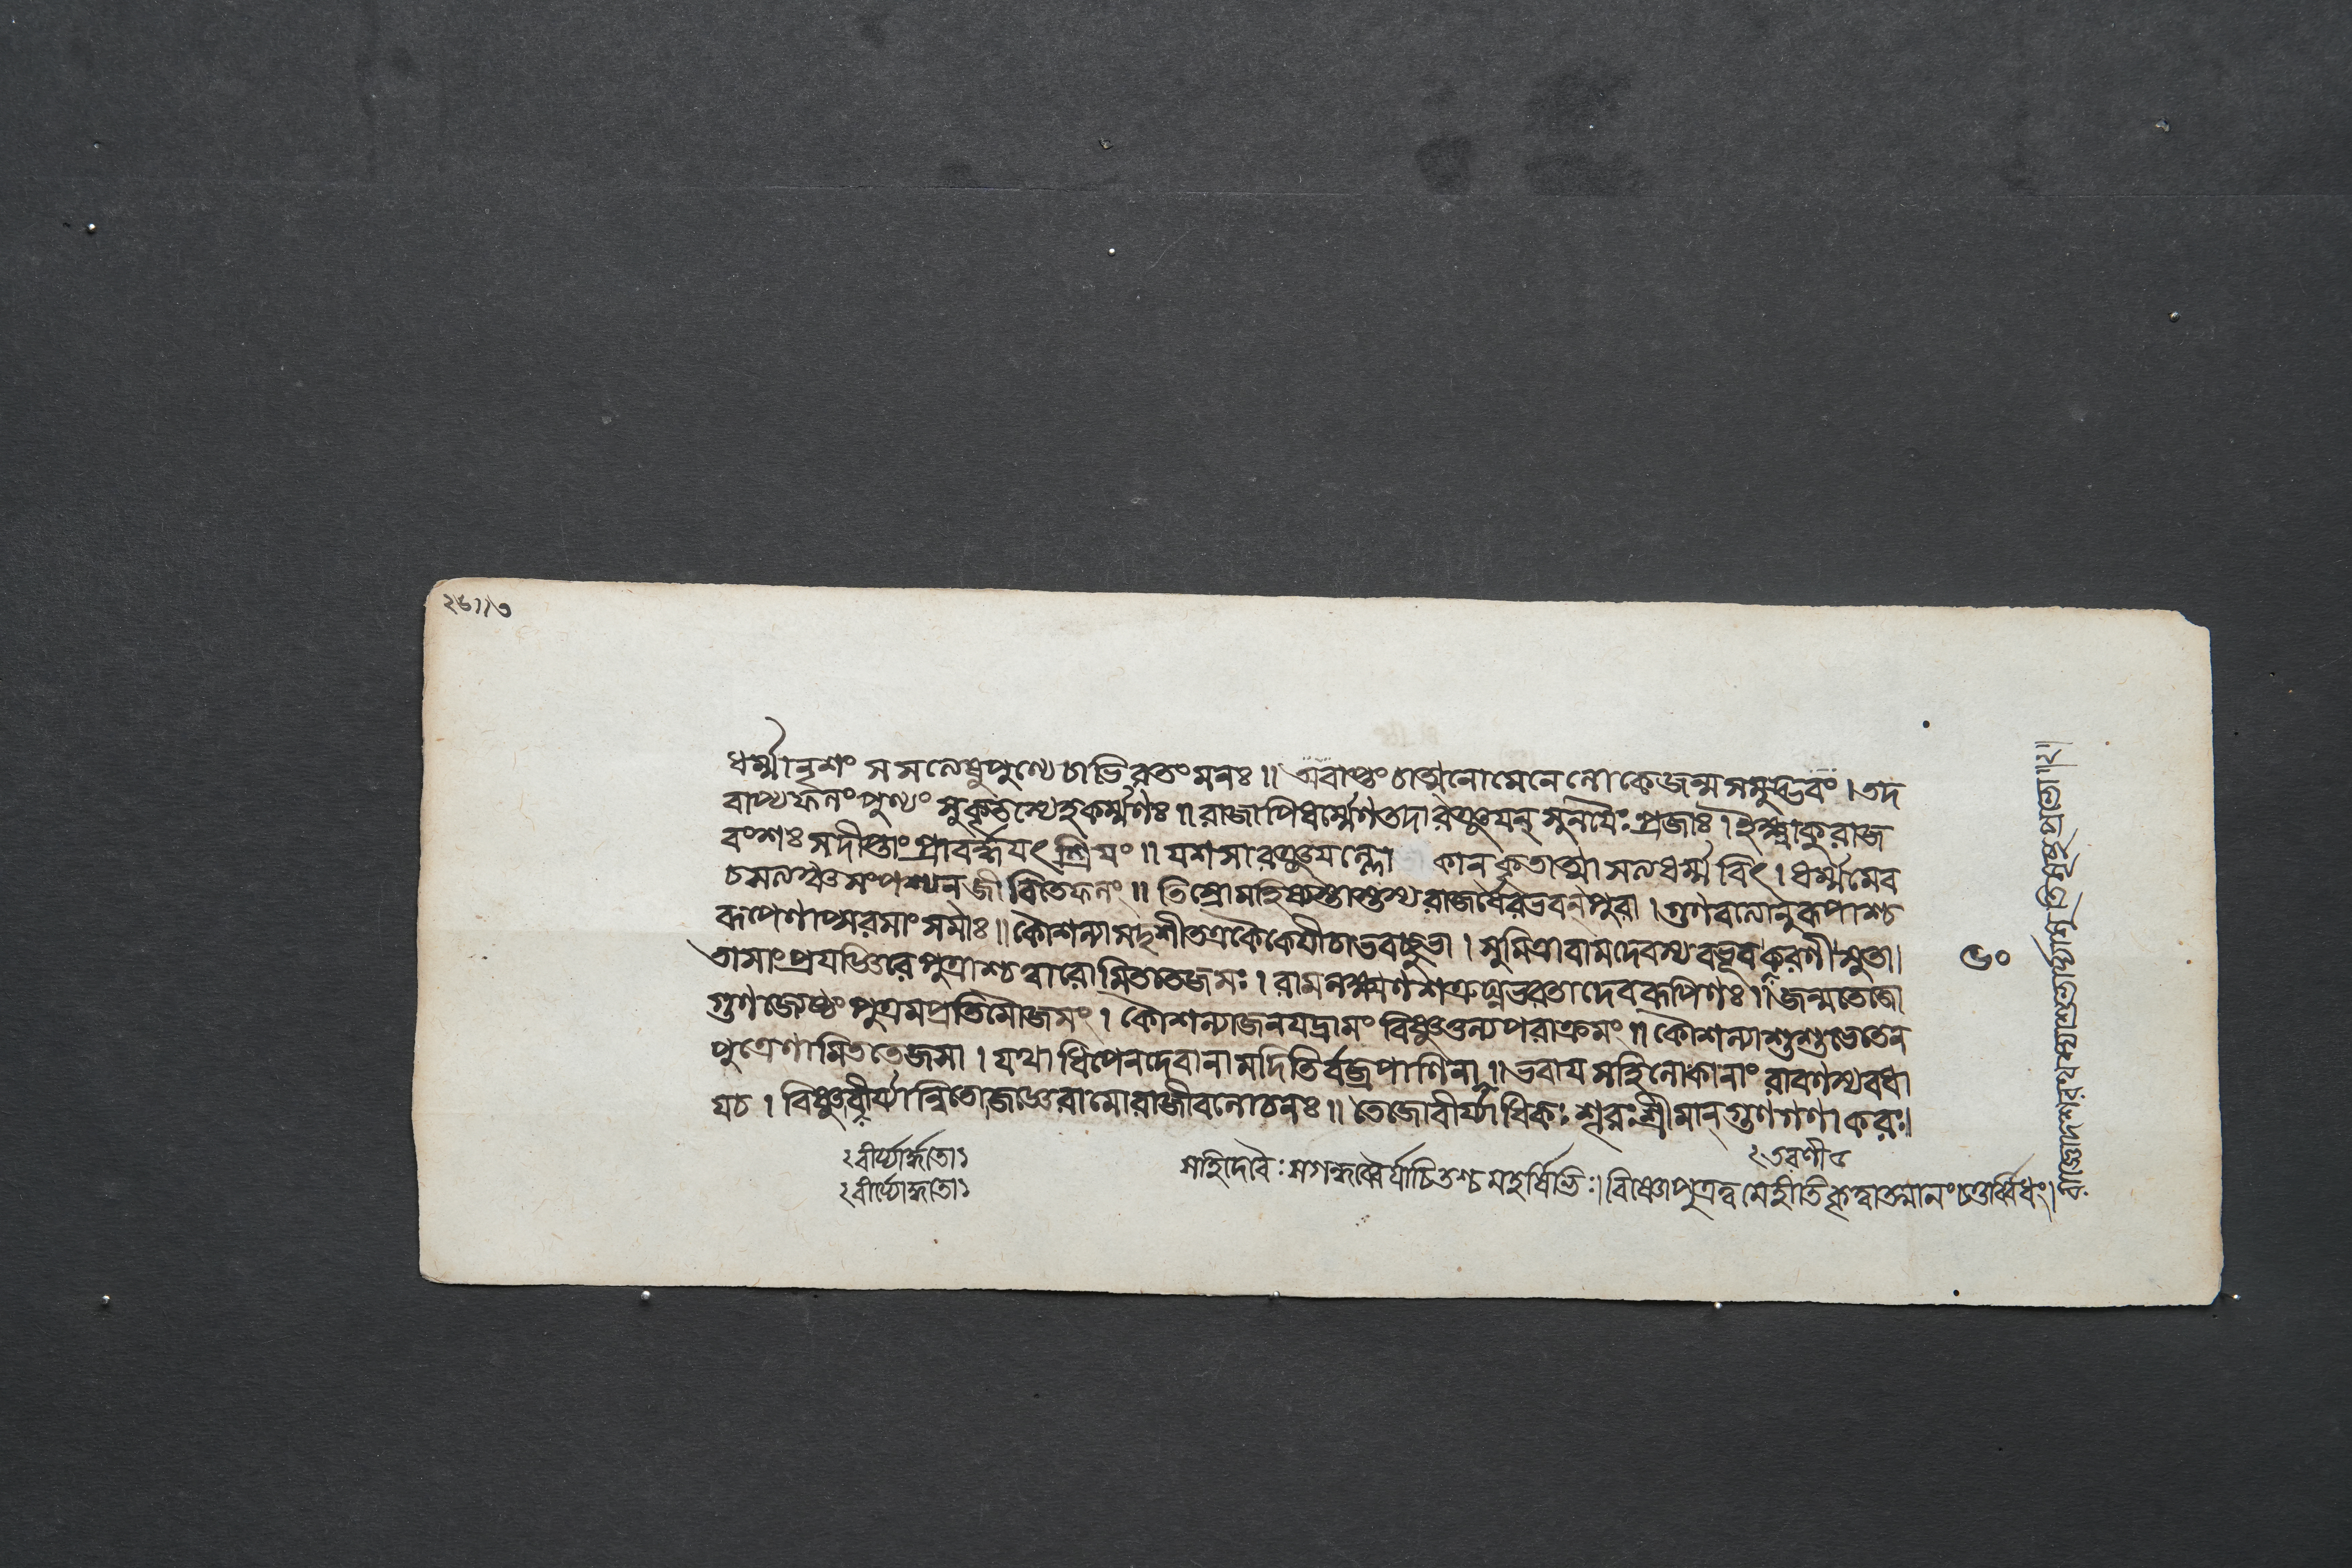 ধর্ম্মানৃশং স সত্যেষুপুণ্যে চাভিরতং মনঃ ॥ অবাপ্তং চাত্মনোমেনে লোকেজন্ম সমুদ্ভবং । তদ
বাপ্যফলং পুণ্যং সুকৃতস্যেহকর্ম্মণঃ ॥ রাজাপিধর্ম্মেণতদারঞ্জযন্ সুনযৈঃ প্রজাঃ । ইক্ষ্বাকুরাজ
বংশঃ সদীপ্তাং প্রাবর্ত্তযৎ শ্রিযং ॥ যশসারঞ্জযল্লো কানকৃতাত্মা সত্যধর্ম্মবিৎ । ধর্ম্মমেব
চসত্যঞ্চসংপশ্যন্জীবিতেফলং ॥ তিস্রোমহিষ্যস্তাস্তস্য রাজর্ষেরভবন্পুরা । গুণবত্যোনুরূপাশ্চ
রূপেণাপ্সরসাং সমাঃ ॥ কৌশল্যাসদৃশীতত্রকৈকেযীচাভবচ্ছুভা । সুমিত্রাবামদেবস্য বভূবকরণীসুতা।
তাসাং প্রযজ্ঞিরে পুত্রাশ্চত্বারোমিততেজসঃ । রামলক্ষ্মণশত্রুঘ্নভরতাদেবরূপিণঃ ॥ জন্মতেজো
গুণজ্যেষ্ঠং পুত্রমপ্রতিমৌজসং । কৌশল্যাজনযদ্রামং বিষ্ণুতুল্যপরাক্রমং ॥ কৌশল্যাশুশুভেতেন
পুত্রেণামিততেজসা । যথাধিপেনদেবানামদিতির্বজ্রপাণিনা ॥ ভবাযসহিলোকানাং রাবণস্যবধা
যচ । বিষ্ণুবীর্য্যান্বিতোজজ্ঞেরামোরাজীবলোচনঃ ॥ তেজোবীর্য্যাধিকঃ শূরঃ শ্রীমান্গুণগণাকরঃ॥
২বীর্য্যার্দ্ধতো১
সহিদেবৈঃ সগন্ধর্ব্বৈর্যাচিতশ্চ মহর্ষিভিঃ। বিষ্ণোপুত্রত্বমেহীতিকৃত্বাত্মানং চতুর্ব্বিধং।